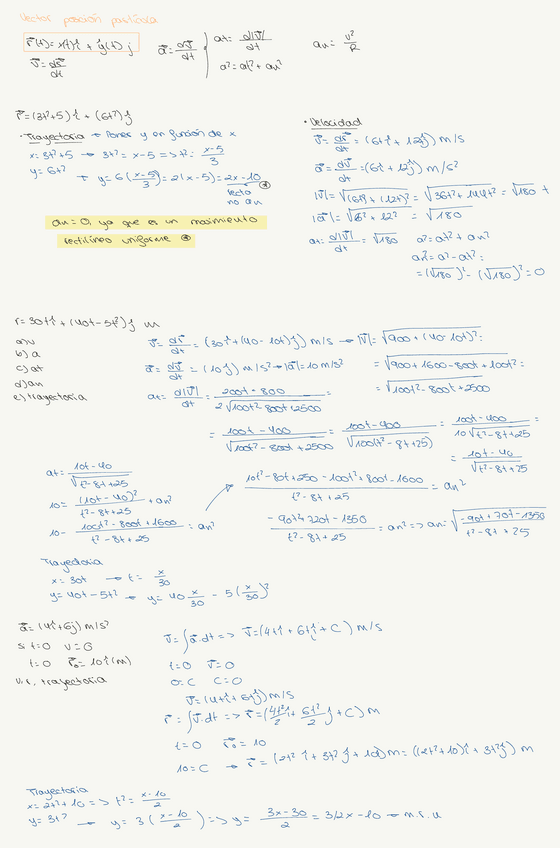 Vector posición partícula
r⃗(t) = x(t) i + y(t) j
v⃗ = dr⃗/dt
a⃗ = dv⃗/dt
at = d|v⃗|/dt
a² = at² + an²
an = v²/R
r⃗ = (3t²+5) i + (6t²) j
· Trayectoria → Poner y en función de x
x = 3t²+5 → 3t² = x-5 => t² = x-5/3
y = 6t² → y = 6(x-5/3) = 2(x-5) = 2x-10
recta
no an
an = 0, ya que es un movimiento
rectilíneo uniforme
• Velocidad
v⃗ = dr⃗/dt = (6t i + 12t j) m/s
a⃗ = dv⃗/dt = (6 i + 12 j) m/s²
|v⃗| = √(6t)² + (12t)² = √36t² + 144t² = √180 t
|a⃗| = √6² + 12² = √180
at = d|v⃗|/dt = √180 a² = at² + an²
an² = a² - at² =
= (√180)² - (√180)² = 0
r = 30t i + (40t - 5t²) j m
a) v
b) a
c) at
d) an
e) trayectoria
v⃗ = dr⃗/dt = (30 i + (40 - 10t) j) m/s → |v⃗| = √900 + (40-10t)² =
a⃗ = dv⃗/dt = (10 j) m/s² → |a⃗| = 10 m/s²
= √900 + 1600 - 800t + 100t² =
= √100t² - 800t + 2500
at = d|v⃗|/dt = 200t - 800 / 2√100t² - 800t + 2500 =
= 100t - 400 / √100t² - 800t + 2500 = 100t - 400 / √100(t² - 8t + 25) = 100t - 400 / 10√t² - 8t + 25 =
= 10t - 40 / √t² - 8t + 25
at = 10t - 40 / √t² - 8t + 25
10 = (10t - 40)² / t² - 8t + 25 + an²
10 - 100t² - 800t + 1600 / t² - 8t + 25 = an²
10t² - 80t + 250 - 100t² + 800t - 1600 / t² - 8t + 25 = an²
-90t² + 720t - 1350 / t² - 8t + 25 = an² => an = √-90t + 70t - 1350 / t² - 8t + 25
Trayectoria
x = 30t → t = x/30
y = 40t - 5t² → y = 40 x/30 - 5(x/30)²
a⃗ = (4 i + 6 j) m/s²
si t=0 v=0
t=0 r⃗₀ = 10 i (m)
v, r, trayectoria
v⃗ = ∫a⃗·dt => v⃗ = (4t i + 6t j + C) m/s
t=0 v⃗=0
0=C C=0
v⃗ = (4t i + 6t j) m/s
r⃗ = ∫v⃗·dt => r⃗ = (4t²/2 i + 6t²/2 j + C) m
t=0 r⃗₀ = 10
10 = C → r⃗ = (2t² i + 3t² j + 10 i) m = ((2t²+10) i + 3t² j) m
Trayectoria
x = 2t² + 10 => t² = x-10/2
y = 3t² → y = 3(x-10/2) => y = 3x-30/2 = 3/2x - 10 → m.r.u